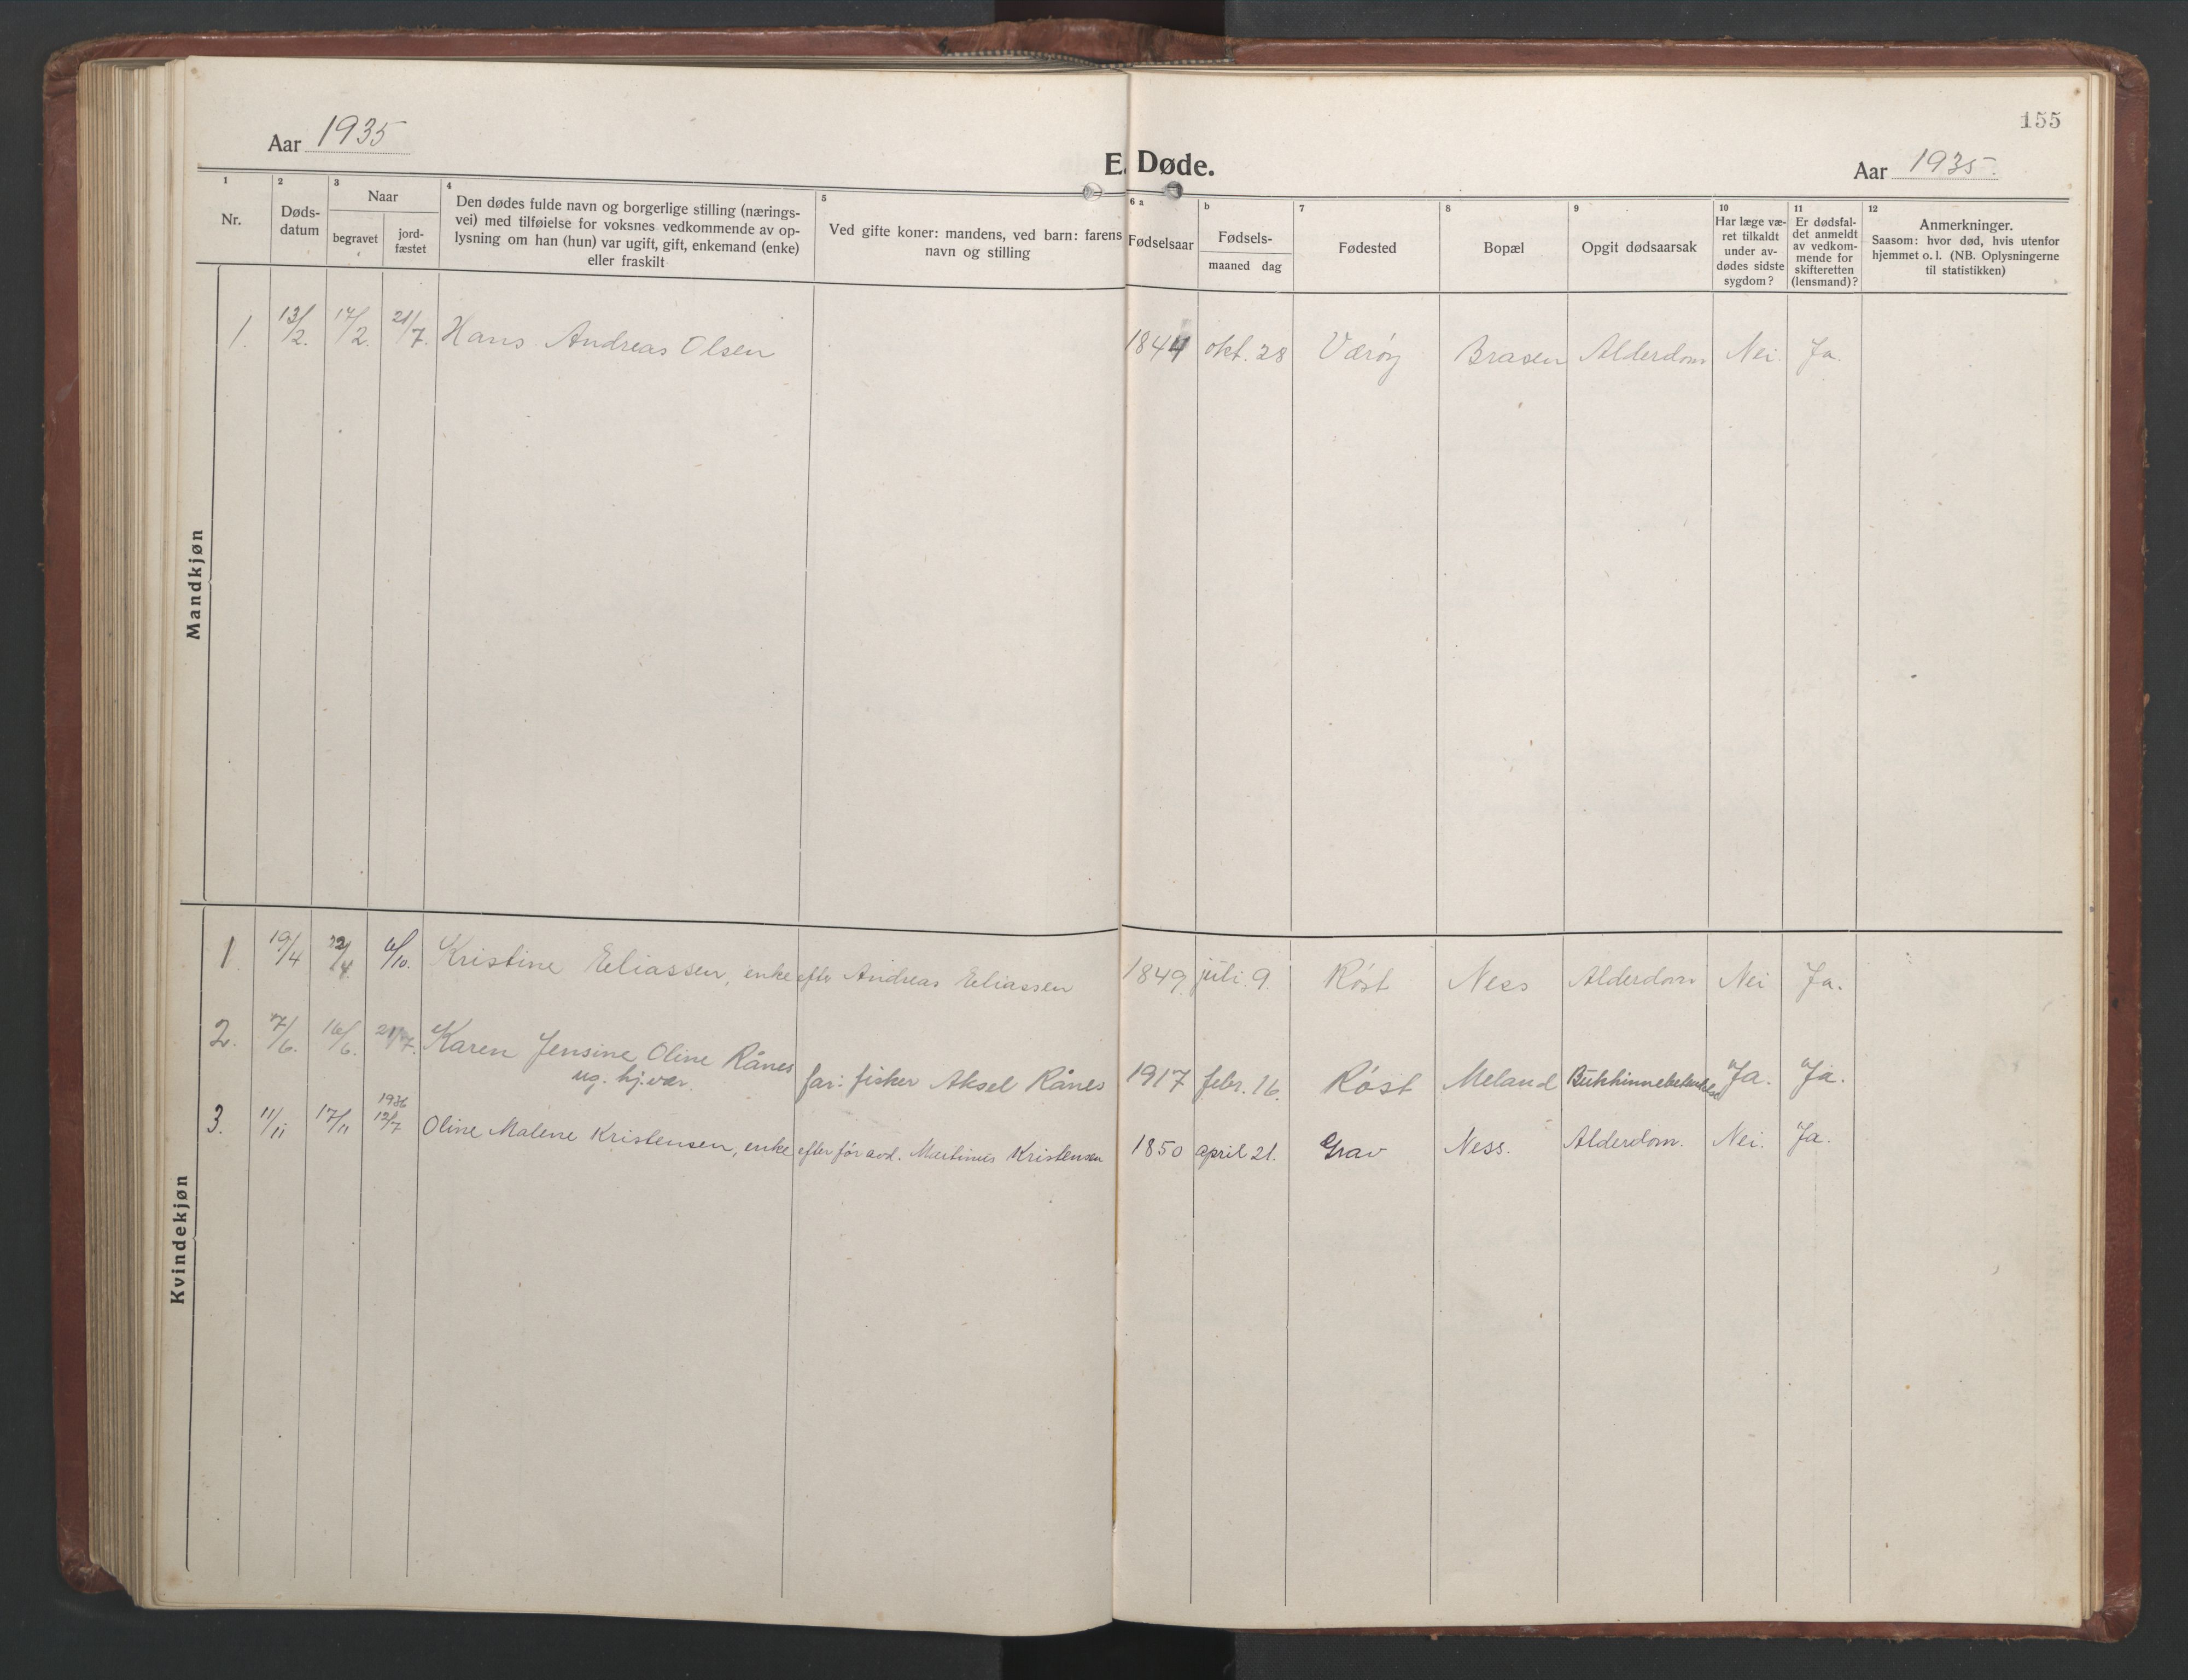 155
Aar 1935
E. Døde.
Aar 1935.
1 2 3 4 5 6 a b 7 8 9 10 11 12
Nr.
Døds-
datum
Naar
begravet
jord-
fæstet
Den dødes fulde navn og borgerlige stilling (nærings-
vei) med tilføielse for voksnes vedkommende av op-
lysning om han (hun) var ugift, gift, enkemand (enke)
eller fraskilt
Ved gifte koner: mandens, ved barn: farens
navn og stilling
Fødselsaar
Fødsels-
maaned dag
Fødested
Bopæl
Opgit dødsaarsak
Har læge væ-
ret tilkaldt
under av-
dødes sidste
sygdom?
Er dødsfal-
det anmeldt
av vedkom-
mende for
skifteretten
(lensmand)?
Anmerkninger.
Saasom: hvor død, hvis utenfor
hjemmet o. l. (NB. Oplysningerne
til statistikken)
Mandkjøn
1. 13/2. 17/2. 21/7. Hans Andreas Olsen 1844 okt. 28 Værøy Brasen Alderdom Nei. Ja.
Kvindekjøn
1. 19/4 22/4 6/10. Kristine Eliassen, enke efter Andreas Eliassen 1849. juli. 9. Røst Ness Alderdom Nei Ja.
2. 7/6. 16/6. 21/7. Karen Jensine Oline Rånes far: fisker Aksel Rånes 1917 febr. 16. Røst Meland Bukhinnebetendelse Ja. Ja.
ug. hj.vær.
1936
3. 11/11 17/11 12/7 Oline Malene Kristensen, enke efter før avd. Martinus Kristensen 1850 april 21. Grav Ness. Alderdom. Nei. Ja.